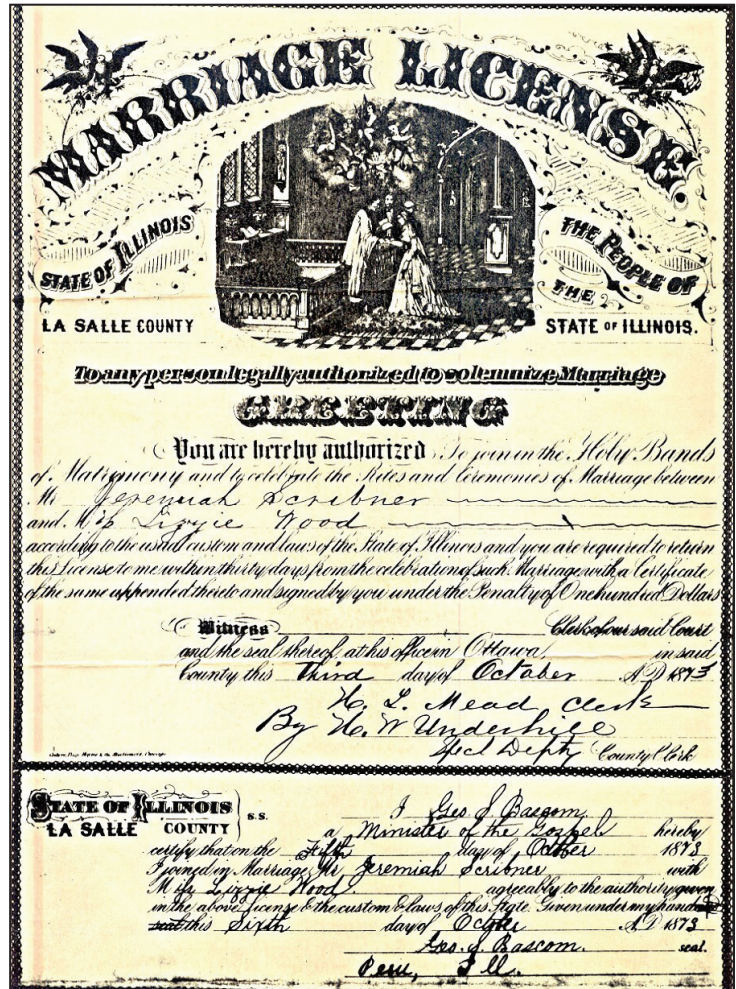 MARRIAGE LICENSE.
STATE OF ILLINOIS
THE PEOPLE OF
THE
LA SALLE COUNTY
STATE OF ILLINOIS.
To any person legally authorized to solemnize Marriage
GREETING
You are hereby authorized To join in the Holy Bands
of Matrimony and to celebrate the Rites and Ceremonies of Marriage between
Mr Jeremiah Scribner
and Miss Lizzie Wood
according to the usual custom and laws of the State of Illinois and you are required to return
this License to me within thirty days from the celebration of such Marriage with a Certificate
of the same appended thereto and signed by you under the Penalty of One hundred Dollars
Witness Clerk of our said Court
and the seal thereof, at his office in Ottawa, in said
County this third day of October A.D 1873
H. L. Mead Clerk
By H. W Underhill
Depty County Clerk
STATE OF ILLINOIS
LA SALLE COUNTY S.S.
I Geo. J. Bascom
a Minister of the Gospel hereby
certify that on the Fifth day of October 1873
I joined in Marriage Mr Jeremiah Scribner with
Miss Lizzie Wood agreeably to the authority given
in the above License & the custom & laws of this State. Given under my hand and
seal this Sixth day of October A.D 1873
Geo. J. Bascom. seal.
Peru, Ill.